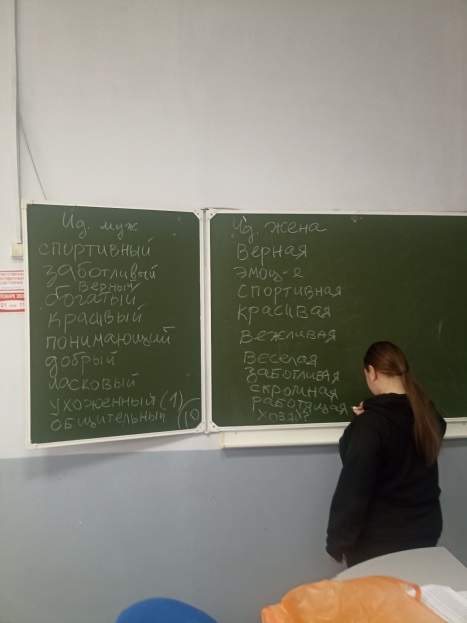 Ид. муж
спортивный
заботливый
Верный
богатый
красивый
понимающий
добрый
ласковый
ухоженный (1)
общительный (10
Ид. жена
Верная
эмоц-я
спортивная
красивая
вежливая
веселая
заботливая
скромная
работящая
хозяй